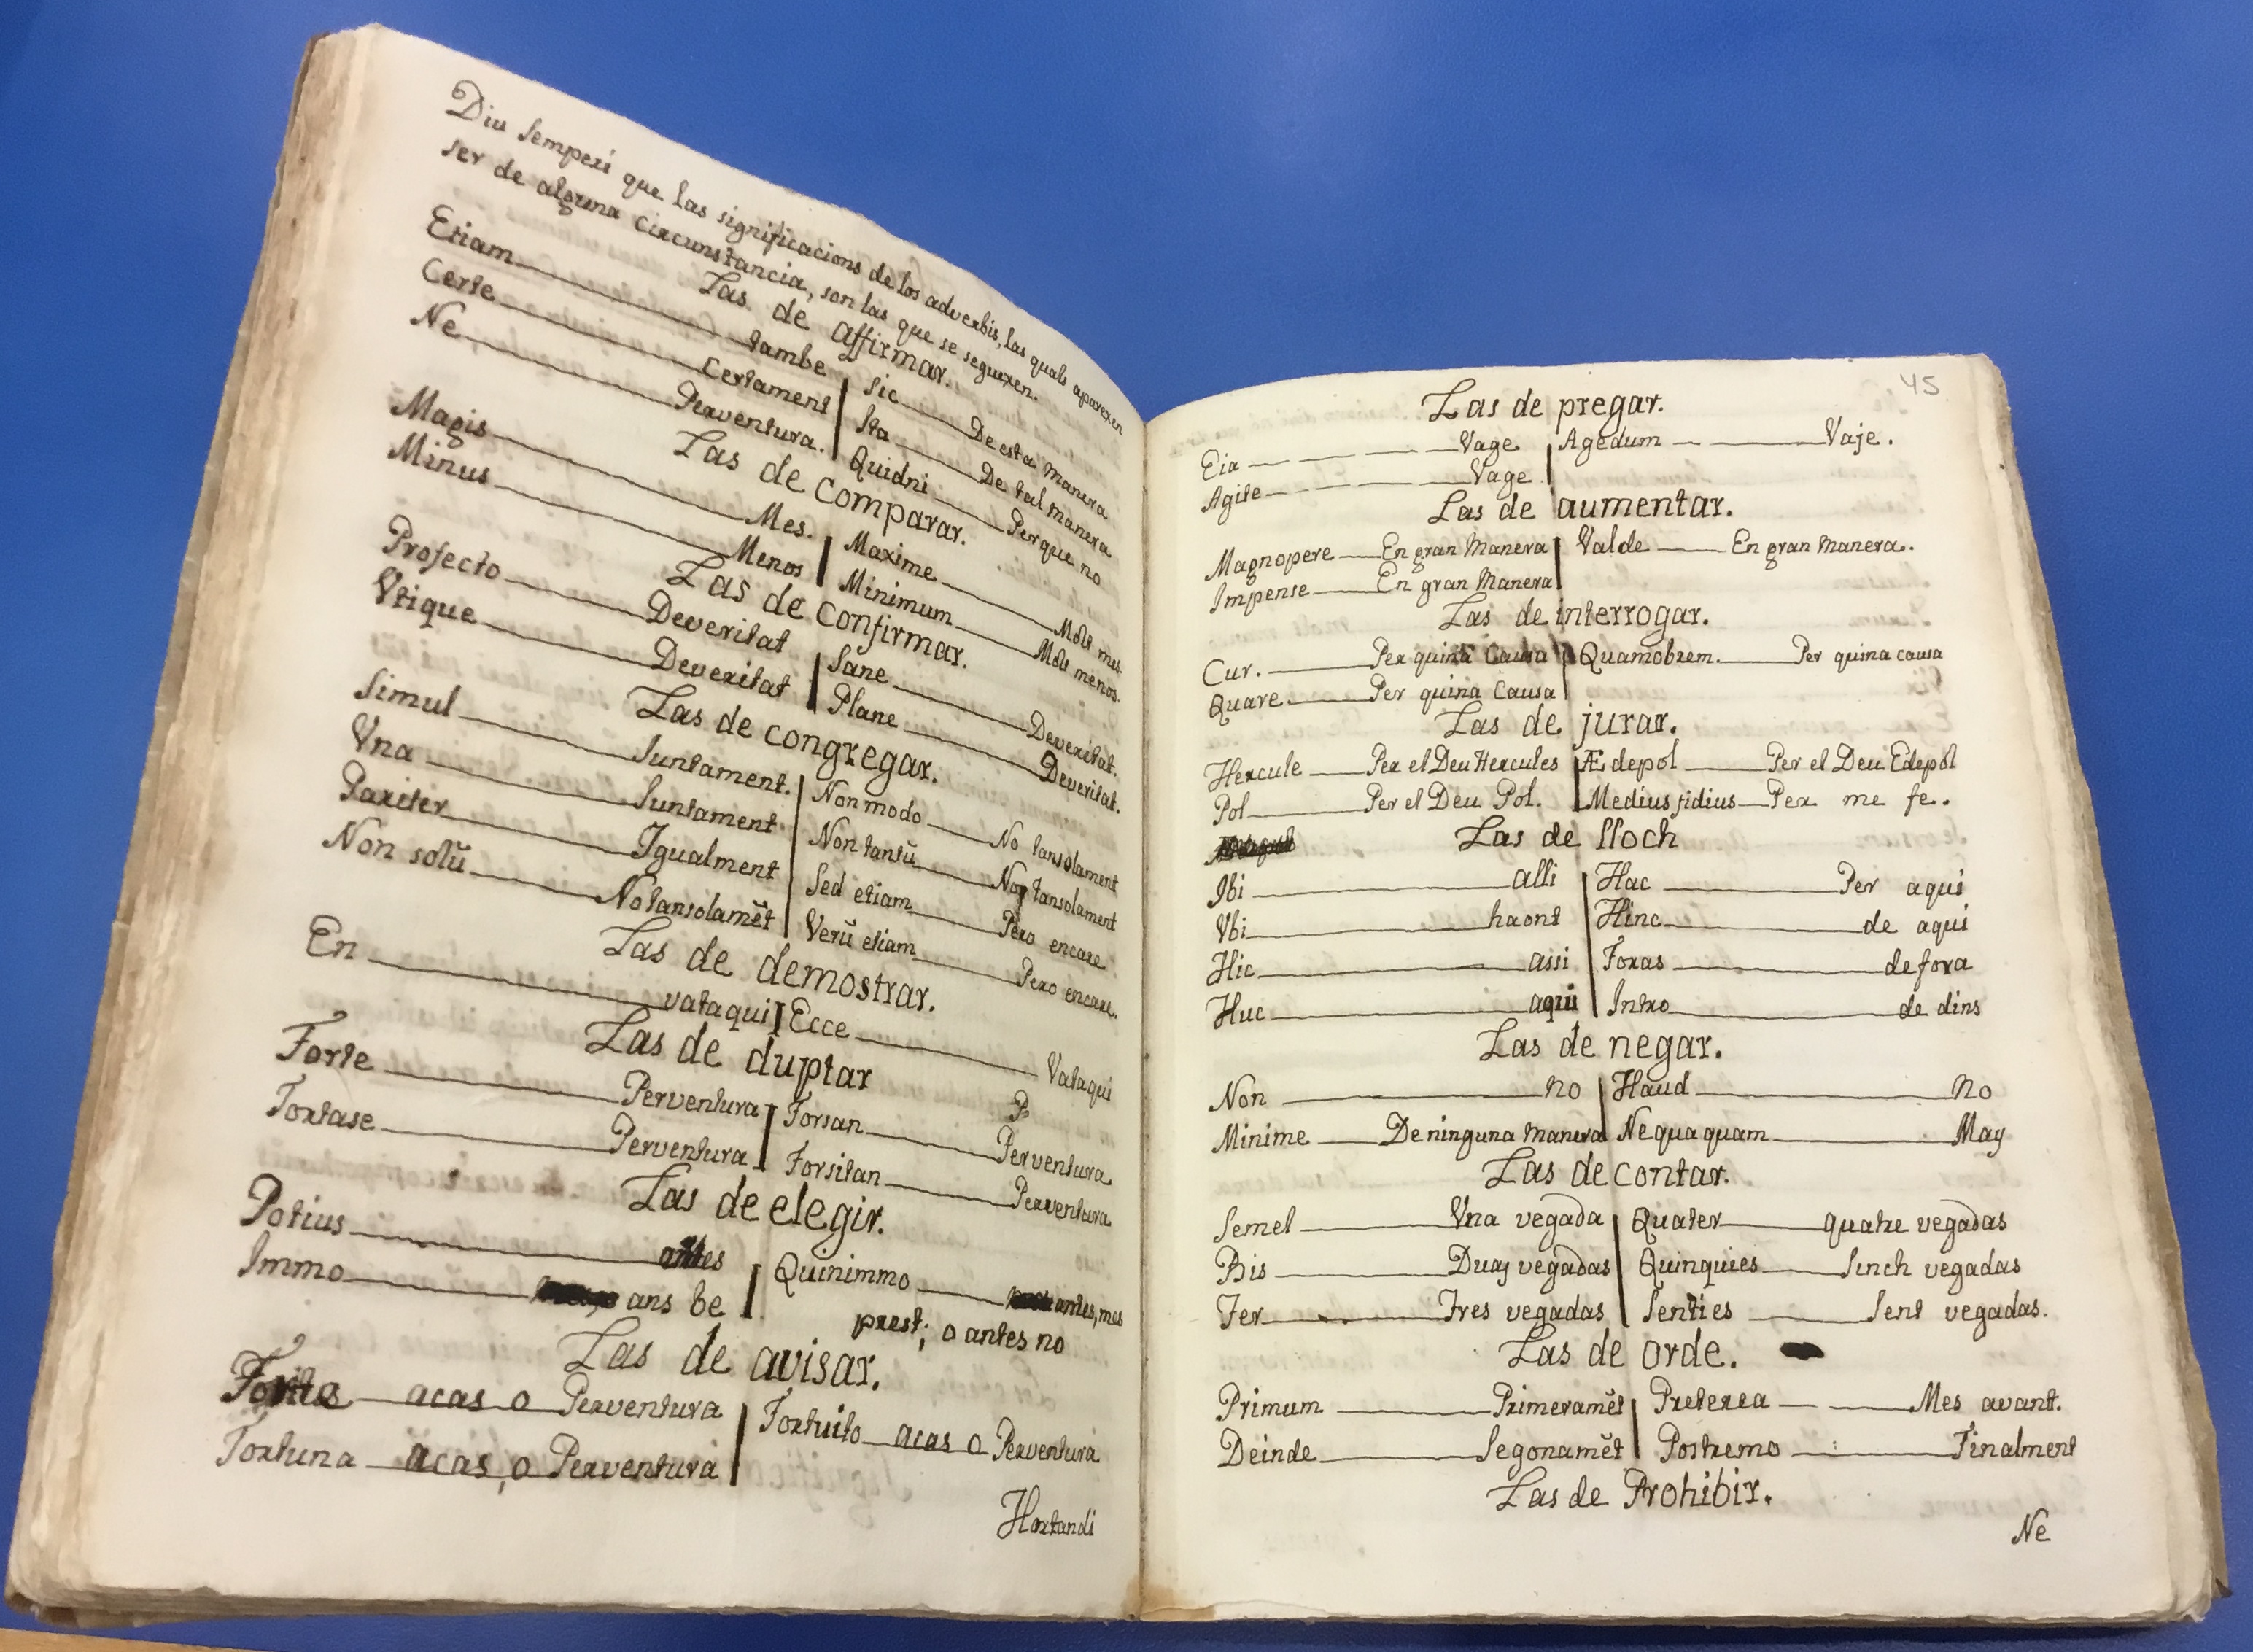 Diu semperi que las significacions de los adverbis, las quals aparexen
ser de alguna circunstancia, son las que se seguexen.
Las de affirmar.
Etiam tambe | Sic De esta manera
Certe Certament | Ita De tal manera
Ne Perventura. | Quidni Per que no
Las de comparar.
Magis Mes. | Maxime Molt mes.
Minus Menos | Minimum Molt menos.
Las de confirmar.
Profecto Deveritat | Sane Deveritat.
Vtique Deveritat | Plane Deveritat.
Las de congregar.
Simul Juntament. | Non modo No tansolament
Vna Juntament | Non tantū No tansolament
Pariter Igualment | Sed etiam Pero encare
Non solū No tansolamēt | Verū etiam Pero encare.
Las de demostrar.
En vataqui | Ecce Vataqui
Las de duptar
P
Forte Perventura | Forsan Perventura
Fortase Perventura | Forsitan Perventura
Las de elegir.
Potius antes | Quinimmo antes, mes
Immo ans be | prest; o antes no
Las de avisar.
acas o Perventura | Fortuito acas o Perventura
Fortuna acas, o Perventura
Hortandi
45
Las de pregar.
Eia Vage | Agedum Vaje.
Agite Vage
Las de aumentar.
Magnopere En gran Manera | Valde En gran Manera.
Impense En gran Manera
Las de interrogar.
Cur. Per quina Causa | Quamobrem. Per quina causa
Quare Per quina Causa
Las de jurar.
Hercule Per el Deu Hercules | Ædepol Per el Deu Edepol
Pol Per el Deu Pol. | Medius fidius Per me fe.
Las de lloch
Ibi alli | Hac Per aqui
Vbi haont | Hinc de aqui
Hic assi | Foras de fora
Huc aqui | Intro de dins
Las de negar.
Non no | Haud no
Minime De ninguna manera | Nequaquam May
Las de contar.
Semel Vna vegada | Quater quatre vegadas
Bis Duas vegadas | Quinquies Sinch vegadas
Ter Tres vegadas | Senties Sent vegadas.
Las de orde.
Primum Primeramēt | Preterea Mes avant.
Deinde Segonamēt | Postremo Finalment
Las de Prohibir.
Ne